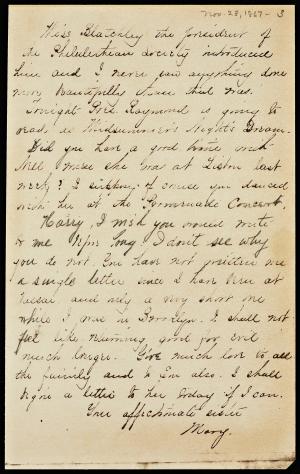 Nov. 23, 1867 - 3
Miss Blatchley the president of
the Philalethean Society introduced
him and I never saw anything done
more beautifully than that was.
Tonight Prof. Raymond is going to
read us Midsummer's Night's Dream.
Did you have a good time with
Nell when she was at Lisbon last
week? I suppose of course you danced
with her at the Promenade Concert.
Harry, I wish you would write
to me. I don't see why
you do not. You have not written me
a single letter since I have been at
Vassar and only a very short one
while I was in Brooklyn. I shall not
feel like returning good for evil
much longer. Give much love to all
the family and to Em also. I shall
begin a letter to her today if I can.
Your affectionate sister
Mary.